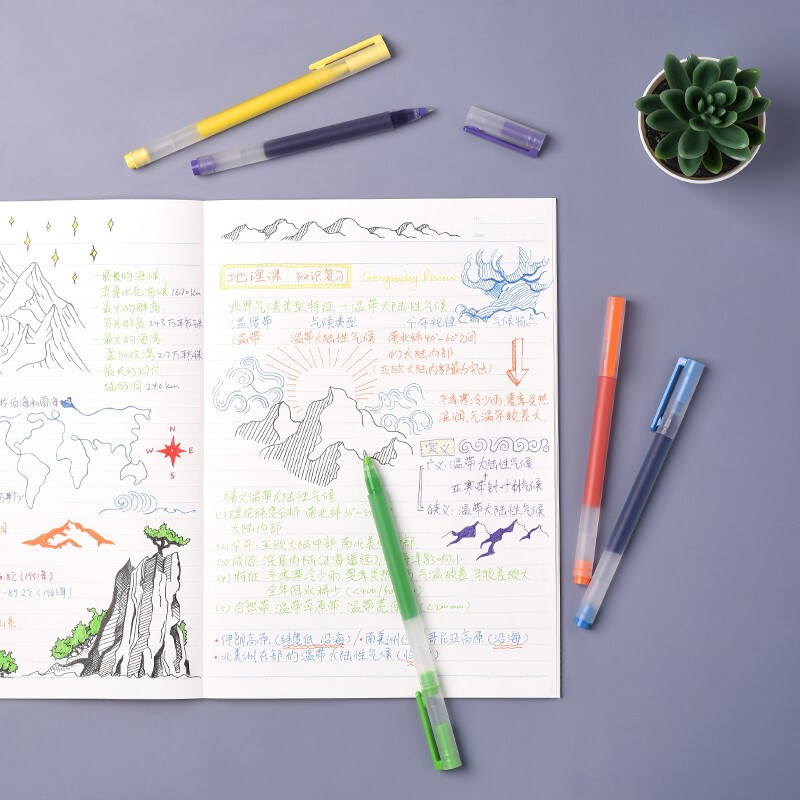 最长的海峡
莫桑比克海峡 1670km
最大的群岛
马来群岛 243万平方km
最大的海湾
孟加拉湾 217万平方km
最长的洞穴
猛犸洞 240km
N
W E
S
-89.2℃ (1983年)
地理课 知识复习
Geography Review
世界气候类型特征—温带大陆性气候
温度带 气候类型 分布规律 气候特点
温带 温带大陆性气候 南北纬40°-60°之间
的大陆内部
(亚欧大陆内部最为突出)
冬季寒冷少雨,夏季炎热
湿润,气温年较差大
定义
广义:温带大陆性气候
+
亚寒带针叶林气候
狭义:温带大陆性气候
狭义温带大陆性气候
(1) 理论纬度分析 南北纬
大陆内部
(2) 分布:亚欧大陆中部 南北美
(3) 成因:深居内陆
(4) 特征 冬季寒冷少雨,夏季炎热 气温较差 年较差较大
全年降水稀少 (<400
(5) 自然带 温带草原带、温带荒漠
·伊朗高原 (纬度低 沿海) /·南美洲 哥尼亚高原 (沿海)
·北美洲西部的温带大陆性气候